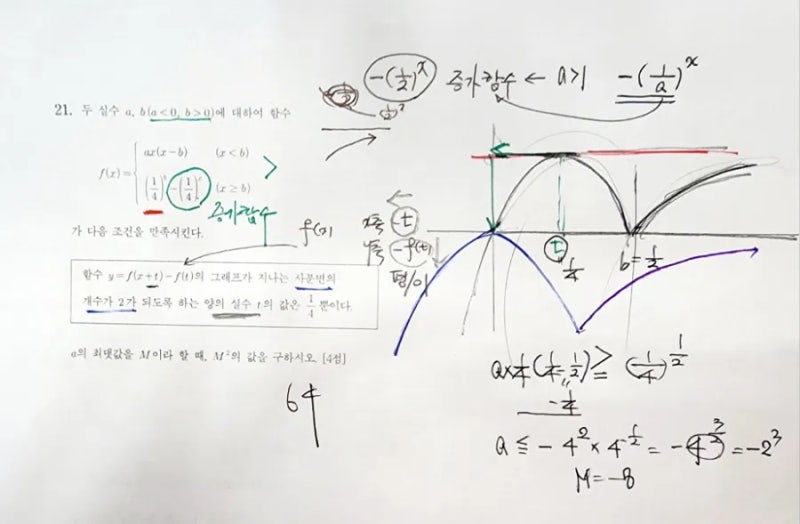 -(1/2)^x 증가함수 ← a>1 -(1/a)^x
21. 두 실수 a, b(a<0, b>0)에 대하여 함수
f(x)= { ax(x-b) (x<b)
(1/4)^b-(1/4)^x (x≥b)
증가함수
가 다음 조건을 만족시킨다.
f(x)
함수 y=f(x+t)-f(t)의 그래프가 지나는 사분면의
개수가 2가 되도록 하는 양의 실수 t의 값은 1/4뿐이다.
a의 최댓값을 M이라 할 때, M²의 값을 구하시오. [4점]
64
x축 -t
y축 -f(t)
평/이
t
1/4
b=1/2
a×1/4(1/4-1/2)≥(1/4)^1/2
-1/4
a≦-4^2×4^-1/2=-4^3/2=-2^3
M=-8